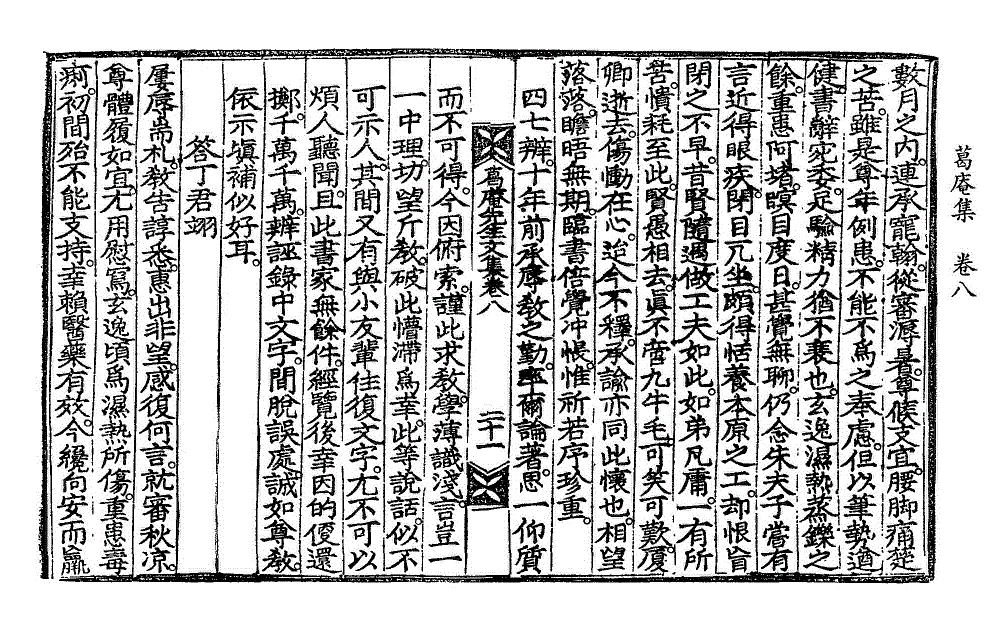 葛庵集　卷八
數月之內。連承寵翰。從審溽暑。尊候支宜。腰脚痛楚
之苦。雖是尊年例患。不能不爲之奉慮。但以筆勢遒
健。書辭宛委。足驗精力猶不衰也。玄逸濕熱蒸鑠之
餘。重患阿堵。瞑目度日。甚覺無聊。仍念朱夫子嘗有
言近得眼疾。閉目兀坐。頗得恬養本原之工。却恨盲
閉之不早。昔賢隨遇做工夫如此。如弟凡庸。一有所
苦。憒耗至此。賢愚相去。眞不啻九牛毛。可笑可歎。厦
卿逝去。傷慟在心。迨今不釋。承諭亦同此懷也。相望
落落。瞻晤無期。臨書倍覺冲悵。惟祈若序珍重。
四七辨。十年前承辱敎之勤。率爾論著。思一仰質
葛庵先生文集卷八　二十一
而不可得。今因俯索。謹此求敎。學薄識淺。言豈一
一中理。切望斤敎。破此懵滯爲幸。此等說話。似不
可示人。其間又有與小友輩往復文字。尤不可以
煩人聽聞。且此書家無餘件。經覽後幸因的便還
擲。千萬千萬。辨誣錄中文字。間脫誤處。誠如尊敎。
依示塡補似好耳。
答丁君翊
屢辱耑札。敎告諄悉。惠出非望。感復何言。就審秋凉。
尊體履如宜。尤用慰寫。玄逸頃爲濕熱所傷。重患毒
痢。初間殆不能支持。幸賴醫藥有效。今纔向安。而羸